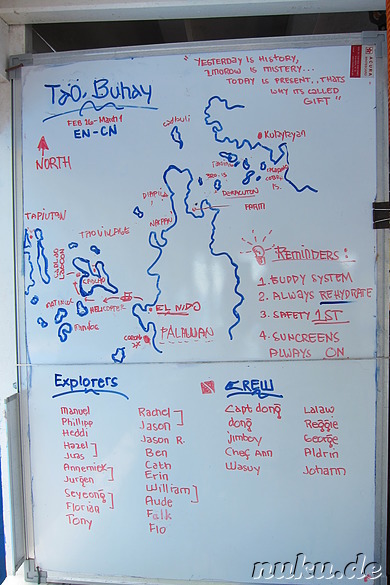 " YESTERDAY IS HISTORY,
2MOROW IS MISTERY...
TODAY IS PRESENT.. THATS
WHY ITS CALLED
GIFT "
TAO BUHAY
FEB 26-March 1
EN-CN
NORTH
KOYBYAN
DIAPILA
DARACUTON
FARM
NACPAN
TAPIUTAN
TAO VILLAGE
CADLAO
MATINLOC
HELICOPTER
EL NIDO
PALAWAN
CORONG
REMINDERS :
1. BUDDY SYSTEM
2. ALWAYS REHYDRATE
3. SAFETY 1ST
4. SUNSCREENS
ALWAYS ON
Explorers
Manuel
Phillipp
Heddi
Hazel
Juas
Annemiek
Jurgen
Seyeong
Florian
Tony
Rachel
Jason
Jason R.
Ben
Cath
Erin
William
Aude
Falk
Flo
CREW
Capt dong
dong
jimboy
Chef Ann
Wasuy
Lalaw
Reggie
George
Aldrin
Johann
nuku.de